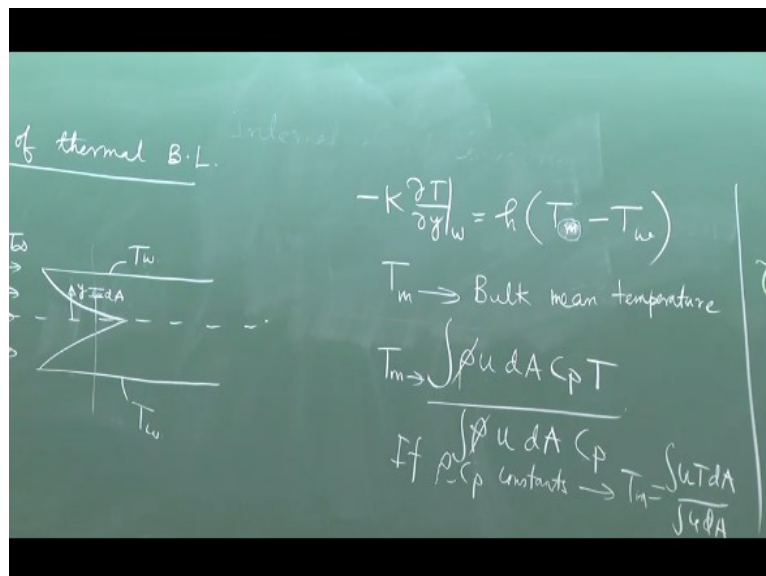 of thermal B.L.
T∞
Tw
y dA
Tw
-K ∂T/∂y|w = h(Tm - Tw)
Tm → Bulk mean temperature
Tm → ∫ρu dA Cp T / ∫ρu dA Cp
If ρ, Cp constants → Tm = ∫uTdA / ∫udA